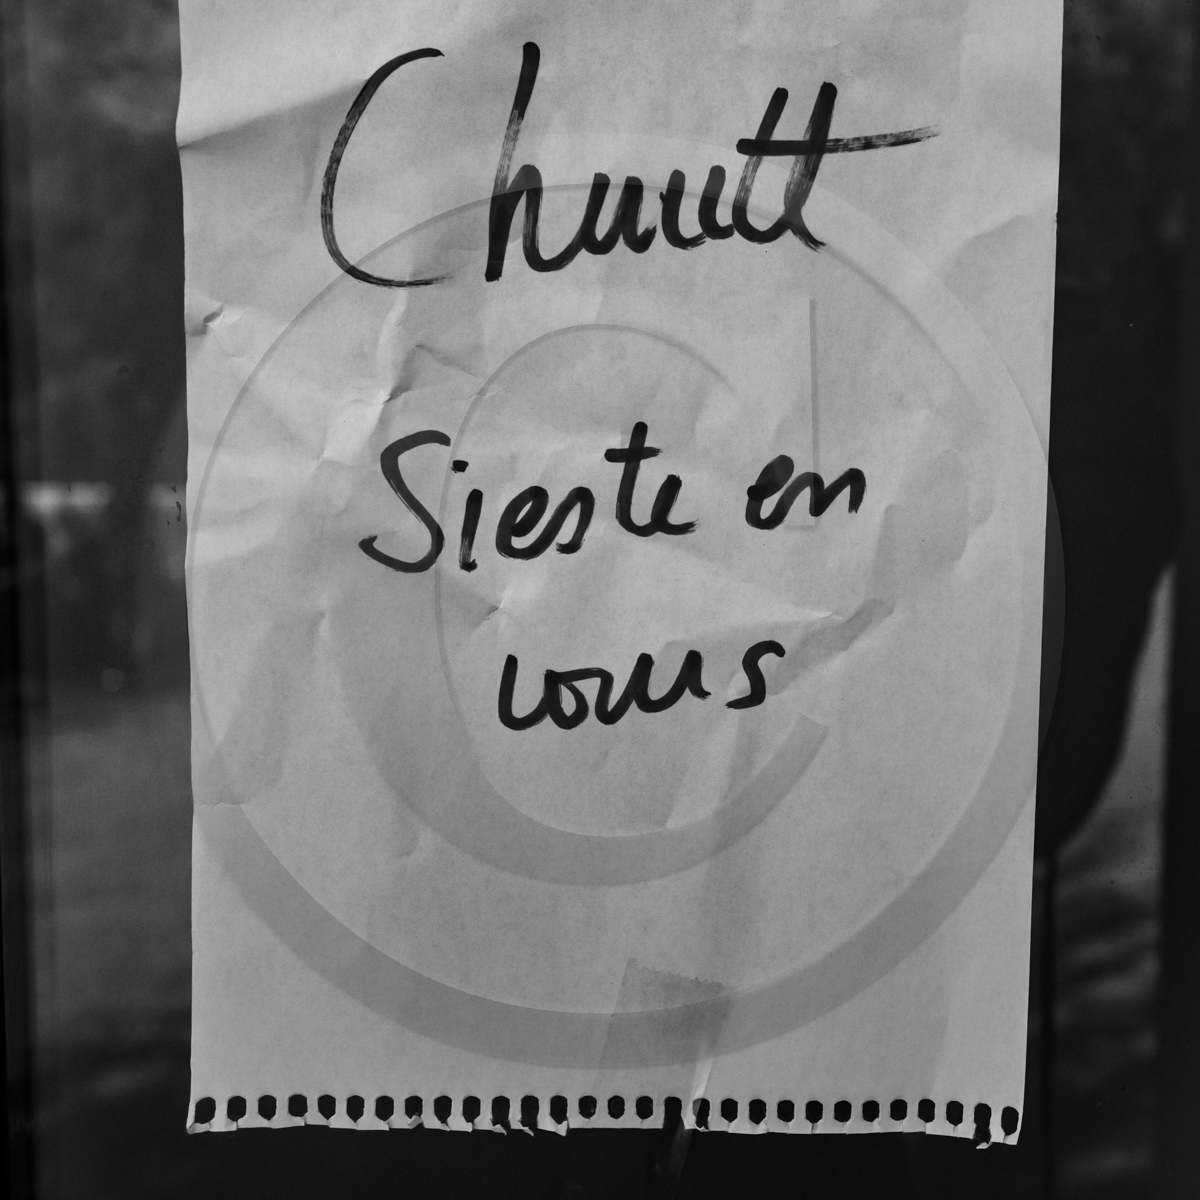 Chuutt
Sieste en
cours